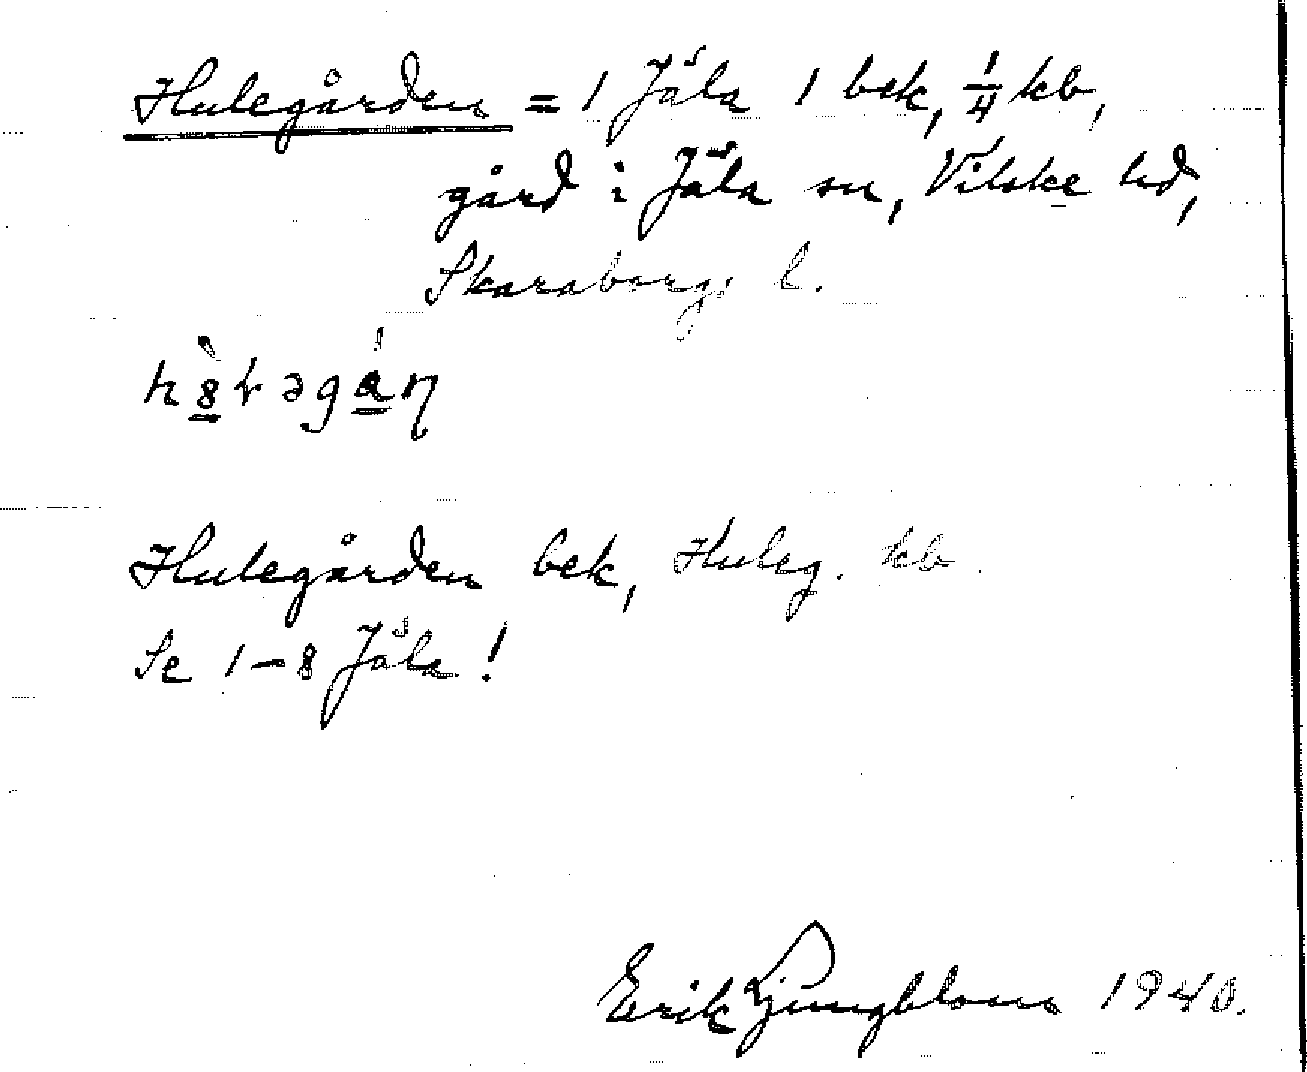 Hulegården = 1 Jäla 1 bek, 1/4 kb,
gård i Jäla sn, Vilske hd,
Skaraborgs l.
Hulegården bek, Huleg. kb.
Se 1-8 Jäla!
Erik Ljungblom 1940.